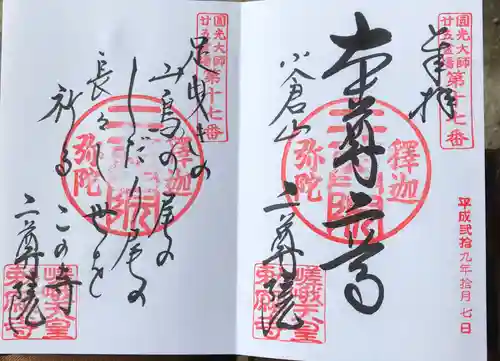 圓光大師
廿五霊場第十七番
上拝
本尊二尊
小倉山
二尊院
釋迦
弥陀
嵯峨天皇
平成弐拾九年拾月七日
圓光大師
廿五霊場第十七番
足曳きの
山鳥の尾の
しだり尾の
長々し世を
祈る
この寺
二尊院
釋迦
弥陀
嵯峨天皇